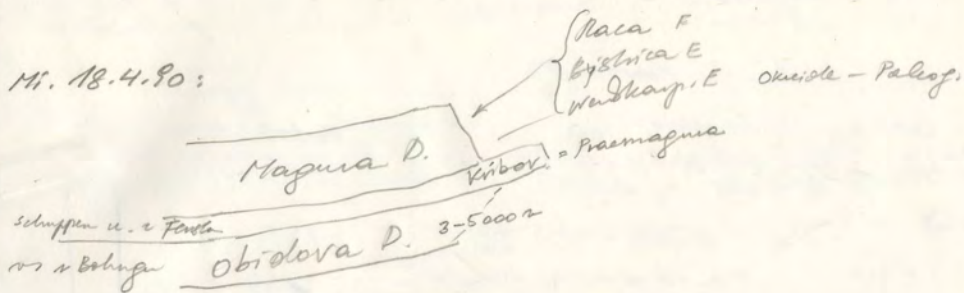 Mi. 18.4.90:
Raca E
Bystrica E
Weisskarp. E
Oravide – Paleog.
Magura D.
Kribov. = Praemagura
Schuppen u. i Fenster
Obidova D.
3–5000 m